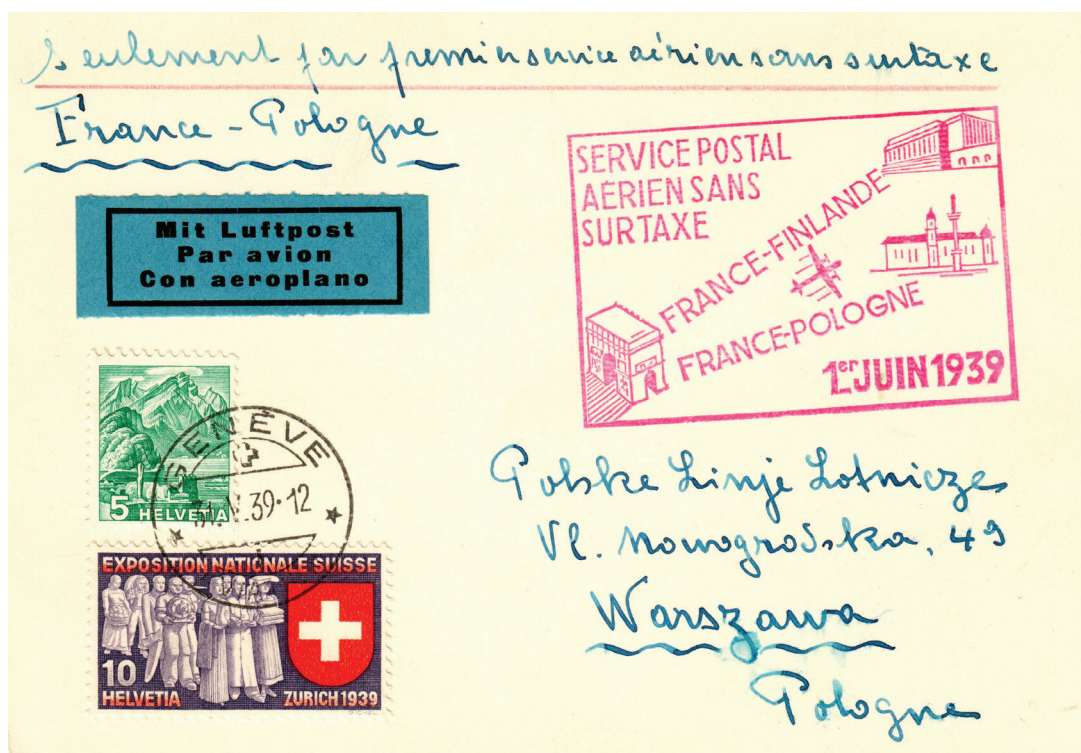 Seulement par premier service aérien sans surtaxe
France - Pologne
Mit Luftpost
Par avion
Con aeroplano
SERVICE POSTAL
AÉRIEN SANS
SURTAXE
FRANCE-FINLANDE
FRANCE-POLOGNE
1er JUIN 1939
5 HELVETIA
GENÈVE
31.V.39-12
1
EXPOSITION NATIONALE SUISSE
10
HELVETIA
ZURICH 1939
Polske Linje Lotnicze
Vl. Nowogrodska, 49
Warszawa
Pologne